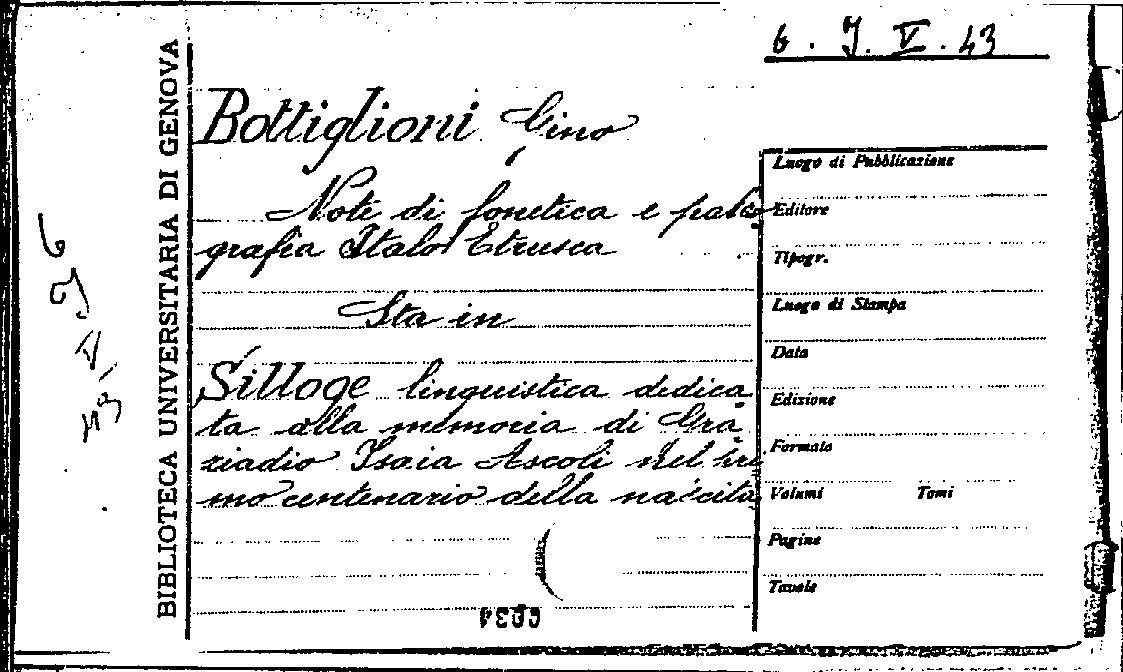 6. J. V. 43
BIBLIOTECA UNIVERSITARIA DI GENOVA
6 J V 43
Bottiglioni Gino
Note di fonetica e paleo
grafia Italo Etrusca
Sta in
Silloge linguistica dedica
ta alla memoria di Gra
ziadio Isaia Ascoli nel pri
mo centenario della nascita
Luogo di Pubblicazione
Editore
Tipogr.
Luogo di Stampa
Data
Edizione
Formato
Volumi Tomi
Pagine
Tavole